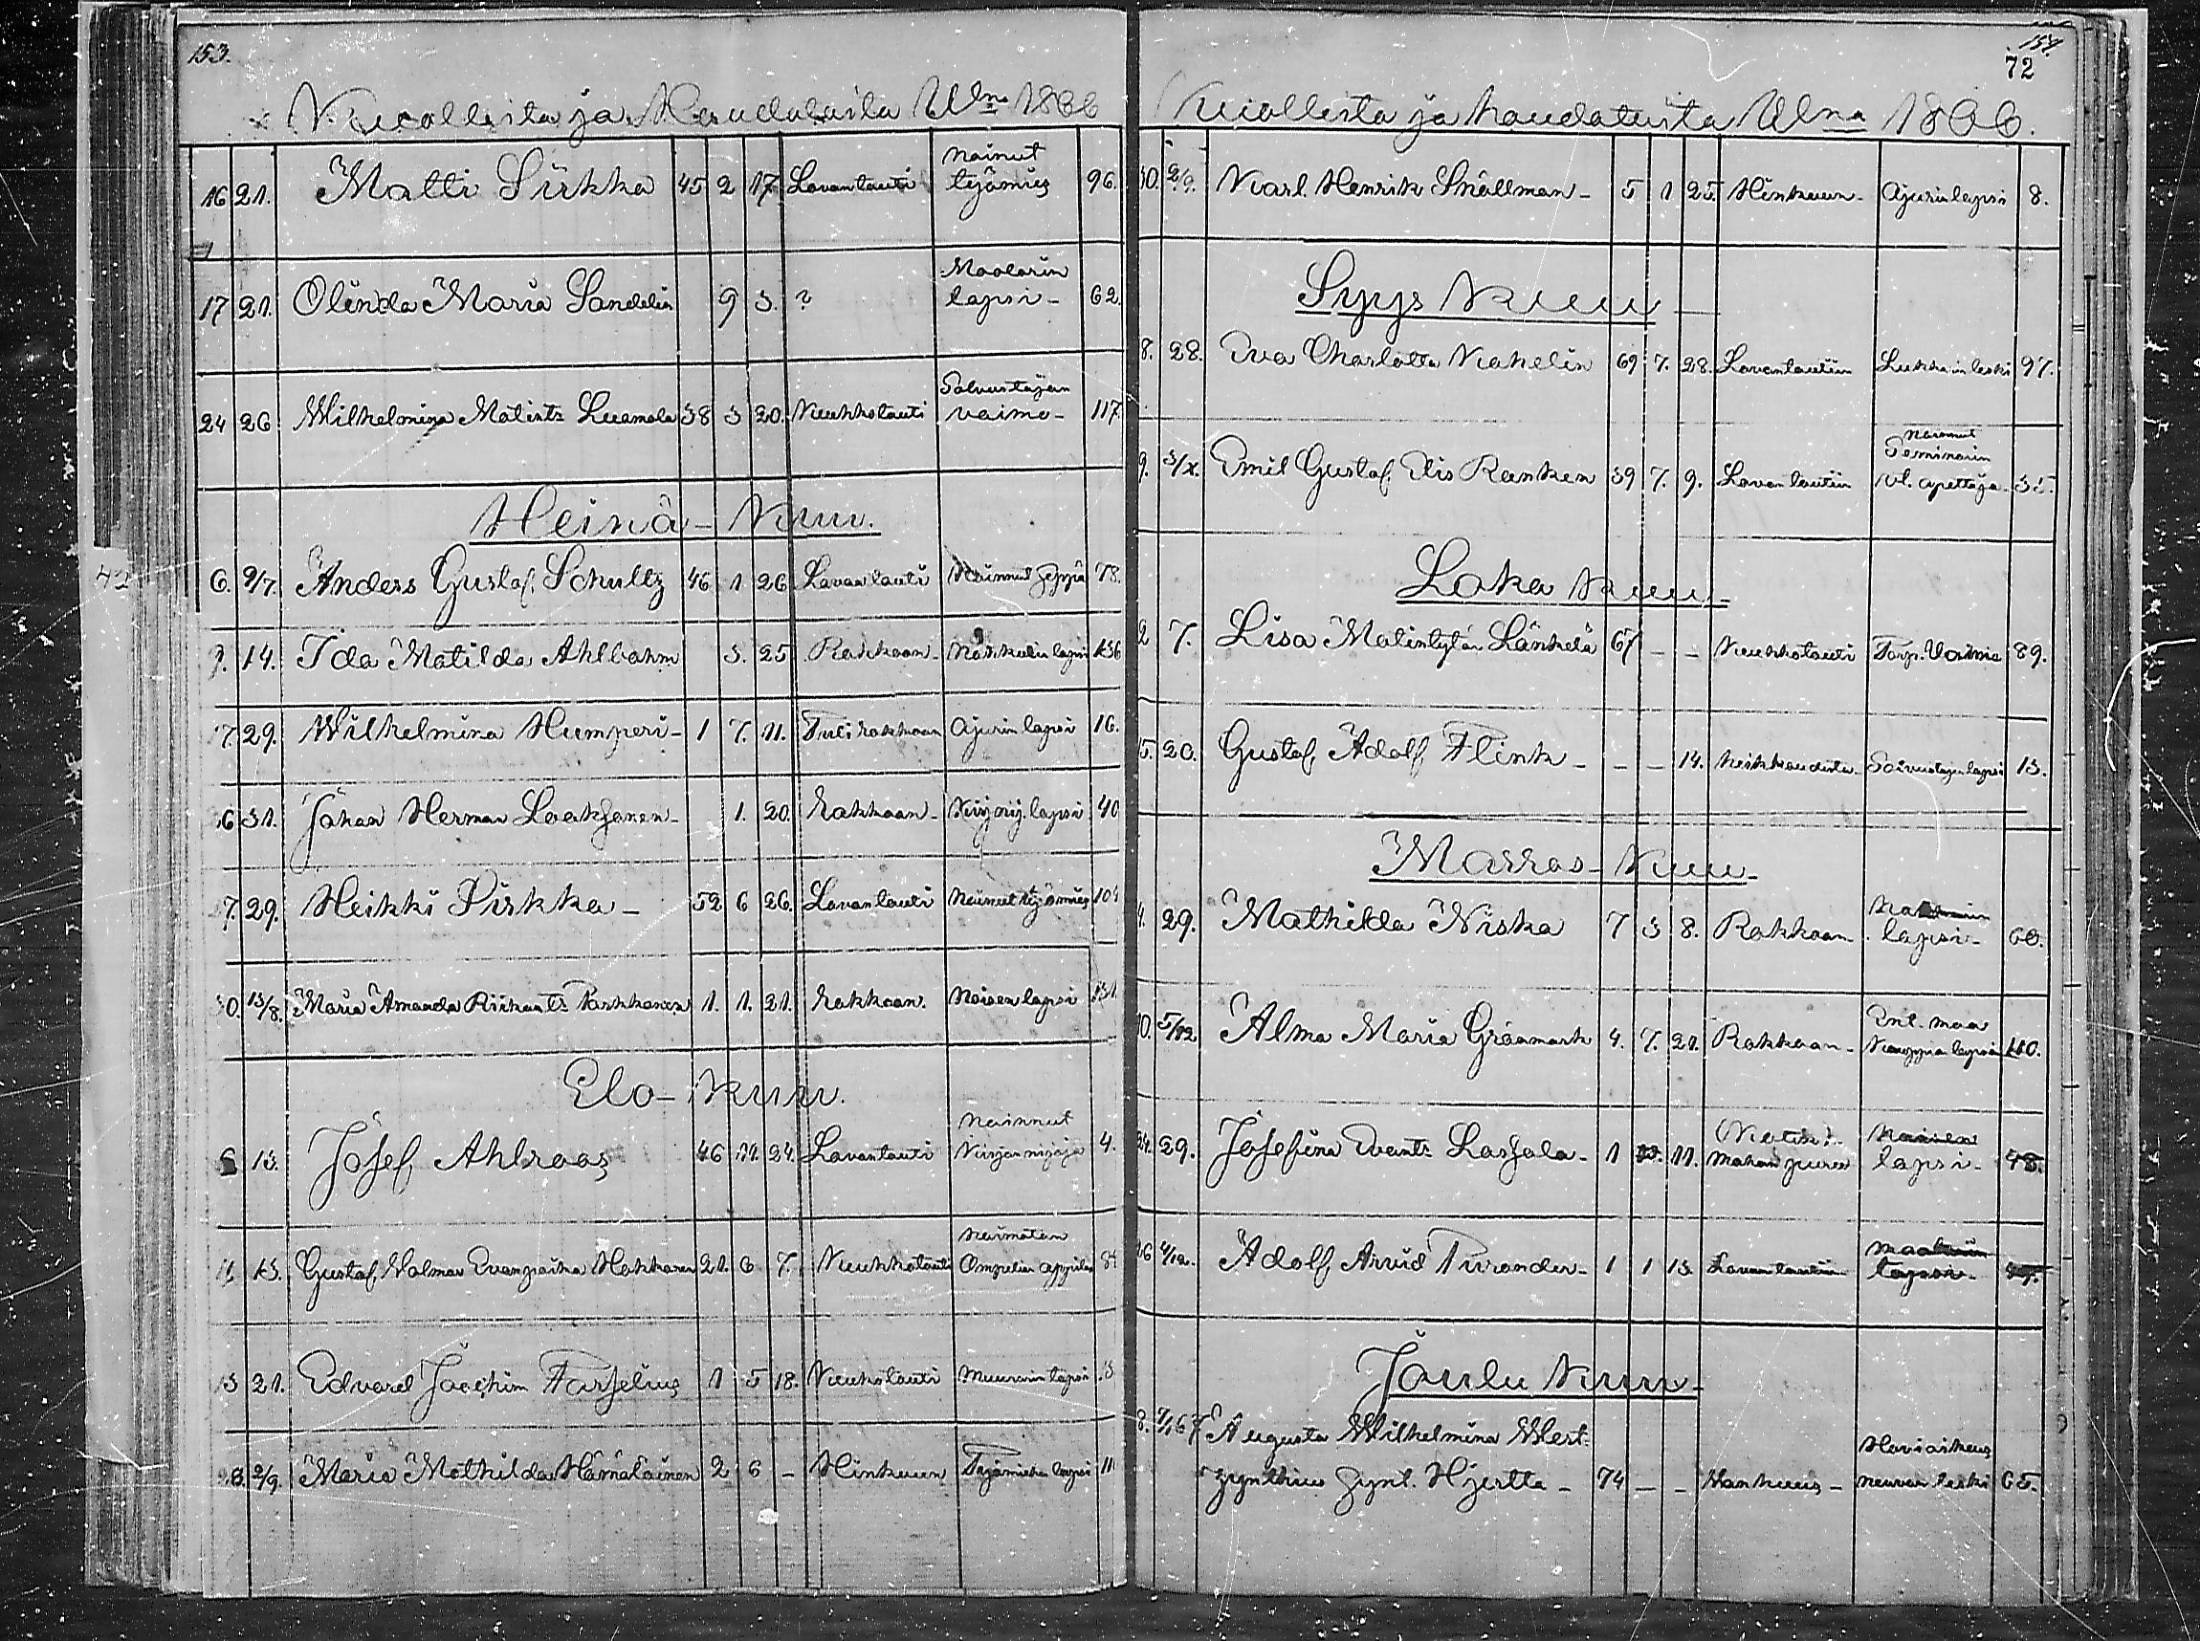 153.
Kuolleista ja Haudatuista Wna 1866
16 21. Matti Sirkka 45 2 17 Lavantauti Nainut työmies 96.
17 21. Olinda Maria Sandelin 9 3. ? Maalarin lapsi - 62.
24 26 Wilhelmina Matints Luemala 38 3 20. Keuhkotauti Palvustajan vaimo - 117
Heinä - Kuu.
6. 9/7. Anders Gustaf Schultz 46 1 26 Lavantauti Nainnut Seppä 78.
9. 14. Ida Matilda Ahlbohm 3. 25 Rokkoon - lapsi 136
17. 29. Wilhelmina Humperi - 1 7. 11. Tulirokkoon Ajurin lapsi 16.
26 31. Johan Herman Laaksonen - 1. 20. Rokkoon - lapsi 40
27. 29. Heikki Pirkka - 52 6 26. Lavantauti Nainut työmies 104
30. 13/8. Maria Amanda Parkkonen 1. 1. 21. Rokkoon. Naisen lapsi 131
Elo - Kuu.
6 13. Josef Ahlroos 46 11. 24. Lavantauti Nainnut 4.
11 13. Gustaf Walmar Evanpoika Hakkaren 21. 6 7. Keuhkotauti Naimaton Ompelian oppilas 84
13 21. Edvard Joachim Forselius 1 5 18. Keuhkotauti Muurarin lapsi
28. 2/9. Maria Mathilda Hämäläinen 2 6 - Hinkuun Työmiehen lapsi 11
154
72
Kuolleista ja haudatuista Wlna 1866.
30. 2/9. Karl Henrik Snällman - 5 1 25. Hinkuun - Ajurin lapsi 8.
Syys Kuu
8. 28. Eva Charlotta Kahelin 69 7. 28. Lavantautiin Lukkarin leski 97.
9. 3/X. Emil Gustaf Elis Ranken 39 7. 9. Lavantautiin Nainnut Seminarin opettaja - 35.
Loka Kuu -
2 7. Lisa Matintytär Länkelä 67 - - Keuhkotauti Torp. Vaimo 89.
15. 20. Gustaf Adolf Flink - - - 14. Heikkoudesta - lapsi 13.
Marras - Kuu -
4. 29. Mathilda Niska 7 3 8. Rokkoon - lapsi - 60.
10. 5/12 Alma Maria Gråamark 4. 7. 21. Rokkoon - Ent. maa Kauppian lapsi 110.
24. 29. Josefina Evants Lassala - 1 11. Mahan puree Naisen lapsi - 48.
26 4/12. Adolf Arvid Turander - 1 1 13. Lavantautiin Maalarin lapsi -
Joulu Kuu -
8. Augusta Wilhelmina Wert-
zynthius Synt. Hjertta - 74 - - Wanhuus - neuvon leski 65.